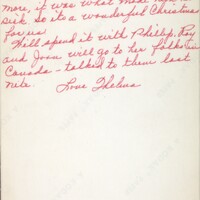 more, it was what made
sick. so its a wonderful Christmas
for us
Will spend it with Phillip. Ray
and Joan will go to her folks in
Canada - talked to them last
nite. Love Thelma